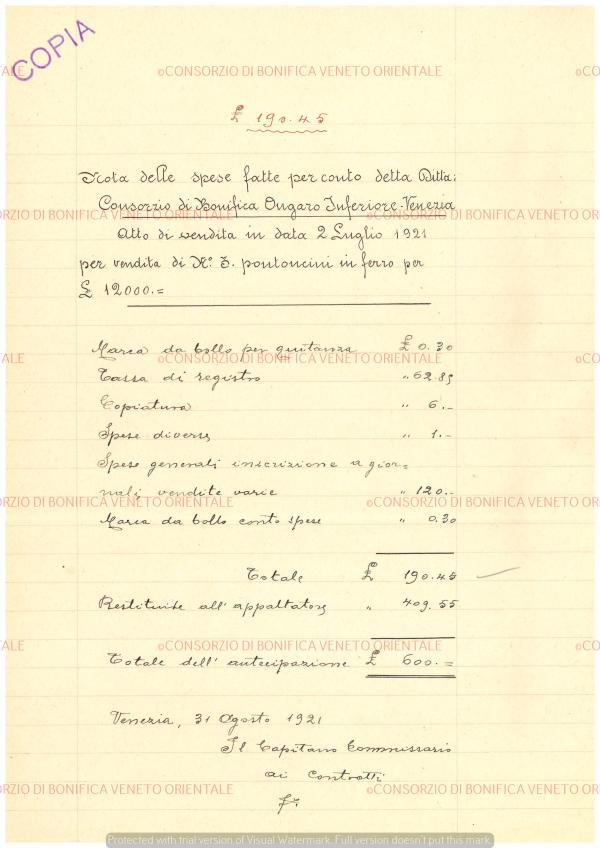 COPIA
©CONSORZIO DI BONIFICA VENETO ORIENTALE
£ 190.45
Nota delle spese fatte per conto detta Ditta:
Consorzio di Bonifica Ongaro Inferiore-Venezia
Atto di vendita in data 2 Luglio 1921
per vendita di N° 3. pontoncini in ferro per
£ 12000.=
Marca da bollo per quitanza £ 0.30
Tassa di registro " 62.85
Copiatura " 6.-
Spese diverse " 1.-
Spese generali inscrizione a gior=
nali vendite varie " 120.-
Marca da bollo conto spese " 0.30
Totale £ 190.45
Restituite all'appaltatore " 409.55
Totale dell'antecipazione £ 600.=
Venezia, 31 Agosto 1921
Il Capitano Commissario
ai Contratti
Protected with trial version of Visual Watermark. Full version doesn't put this mark.